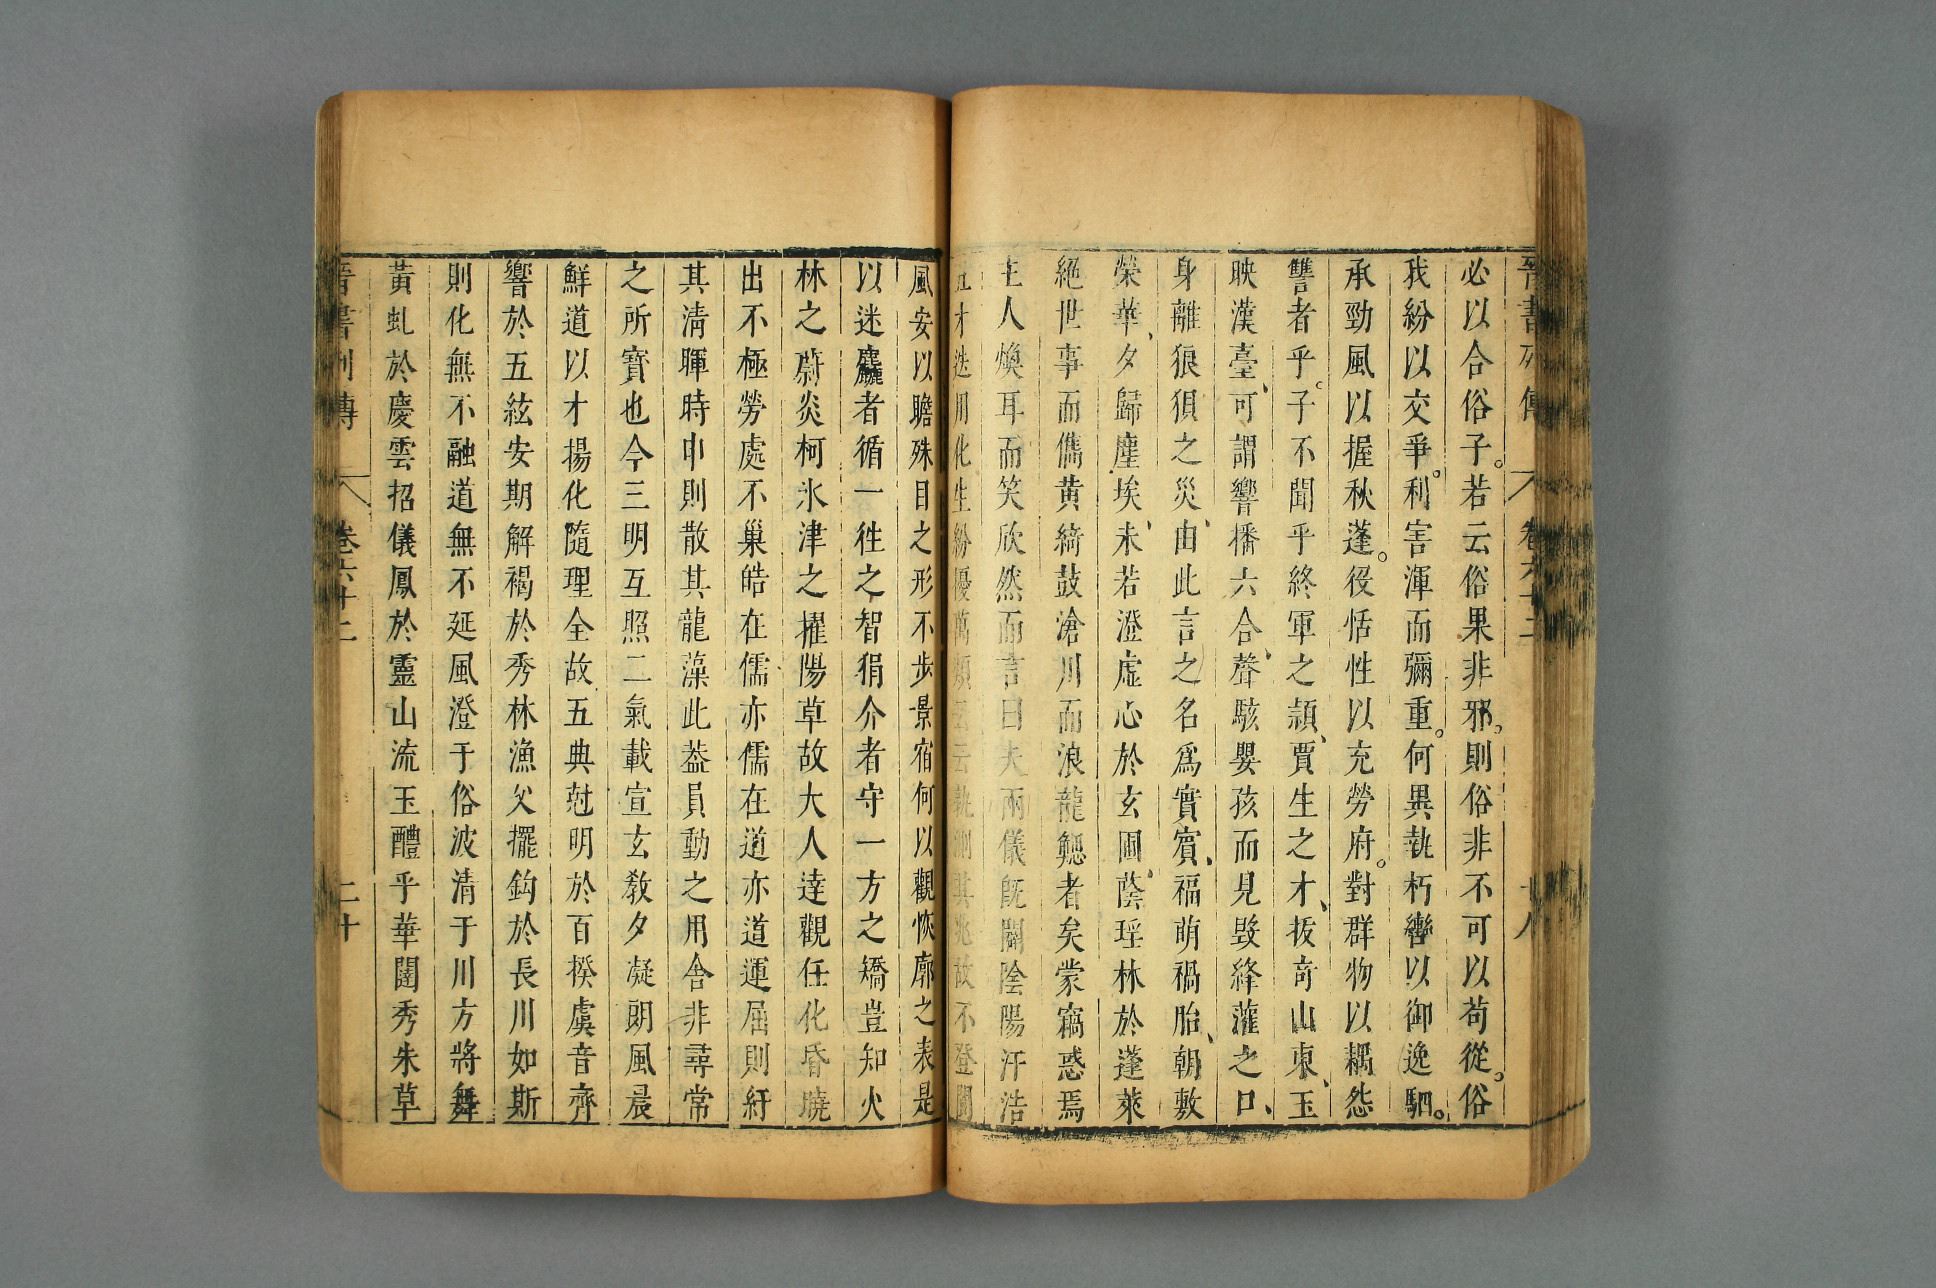 晉書列傳 卷六十二 十八
必以合俗子。若云俗果非邪。則俗非不可以苟從。俗
我紛以交爭。利害渾而彌重。何異執朽轡以御逸駟。
承勁風以握秋蓬。役恬性以充勞府。對群物以耦怨
讐者乎。子不聞乎終軍之頴、賈生之才、拔奇山東、玉
映漢臺、可謂響播六合、聲駭嬰孩而見毀絳灌之口、
身離狼狽之災、由此言之名爲實賓、福萌禍胎、朝敷
榮華、夕歸塵埃、未若澄虛心於玄圃、蔭瑤林於蓬萊
絕世事而儁黃綺鼓滄川而浪龍鰓者矣蒙竊惑焉
主人煥耳而笑欣然而言曰夫兩儀既闢陰陽汗浩
五才迭用化生紛擾萬類云云孰測其兆故不登閬
風安以瞻殊目之形不步景宿何以觀恢廓之表是
以迷麤者循一徃之智狷介者守一方之矯豈知火
林之蔚炎柯氷津之擢陽草故大人達觀任化昏曉
出不極勞處不巢皓在儒亦儒在道亦道運屈則紆
其清暉時申則散其龍藻此葢員動之用舍非尋常
之所寶也今三明互照二氣載宣玄敎夕凝朗風晨
鮮道以才揚化隨理全故五典尅明於百揆虞音齊
響於五絃安期解褐於秀林漁父擺鈎於長川如斯
則化無不融道無不延風澄于俗波清于川方將舞
黃虬於慶雲招儀鳳於靈山流玉醴乎華闥秀朱草
晉書列傳 卷六十二 二十